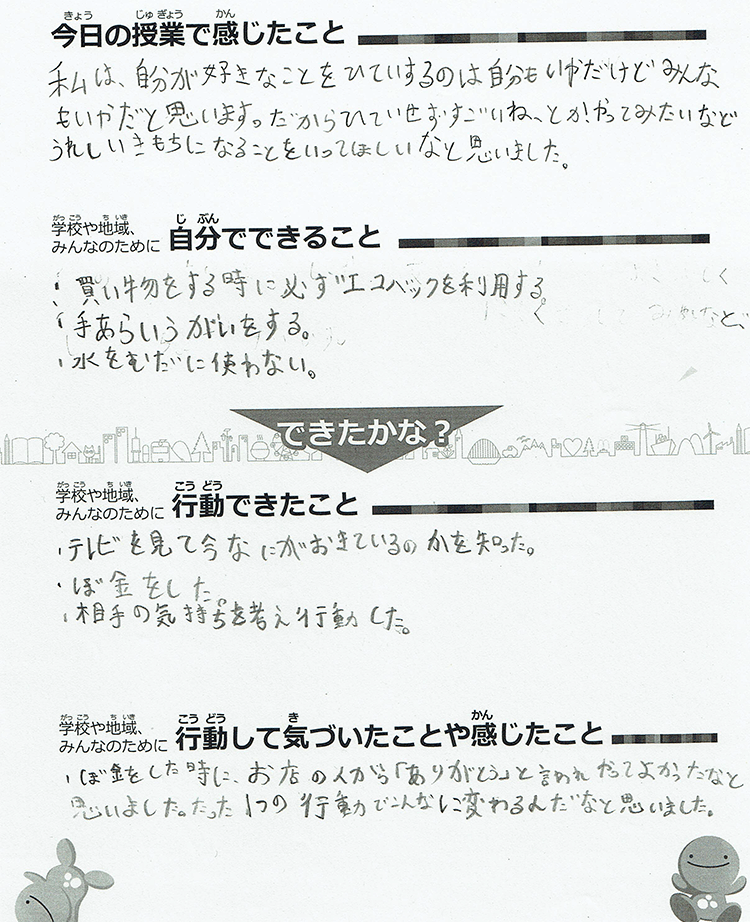 今日の授業で感じたこと
私は、自分が好きなことをひていするのは自分もいやだけどみんな
もいやだと思います。だからひていせずすごいね、とか!やってみたいなど
うれしいきもちになることをいってほしいなと思いました。
学校や地域、
みんなのために 自分でできること
・買い物をする時に必ずエコバックを利用する
・手あらいうがいをする。
・水をむだに使わない。
できたかな?
学校や地域、
みんなのために 行動できたこと
・テレビを見て今なにがおきているのかを知った。
・ぼ金をした。
・相手の気持ちを考え行動した。
学校や地域、
みんなのために 行動して気づいたことや感じたこと
・ぼ金をした時に、お店の人から「ありがとう」と言われやってよかったなと
思いました。たった1つの行動でこんなに変わるんだなと思いました。